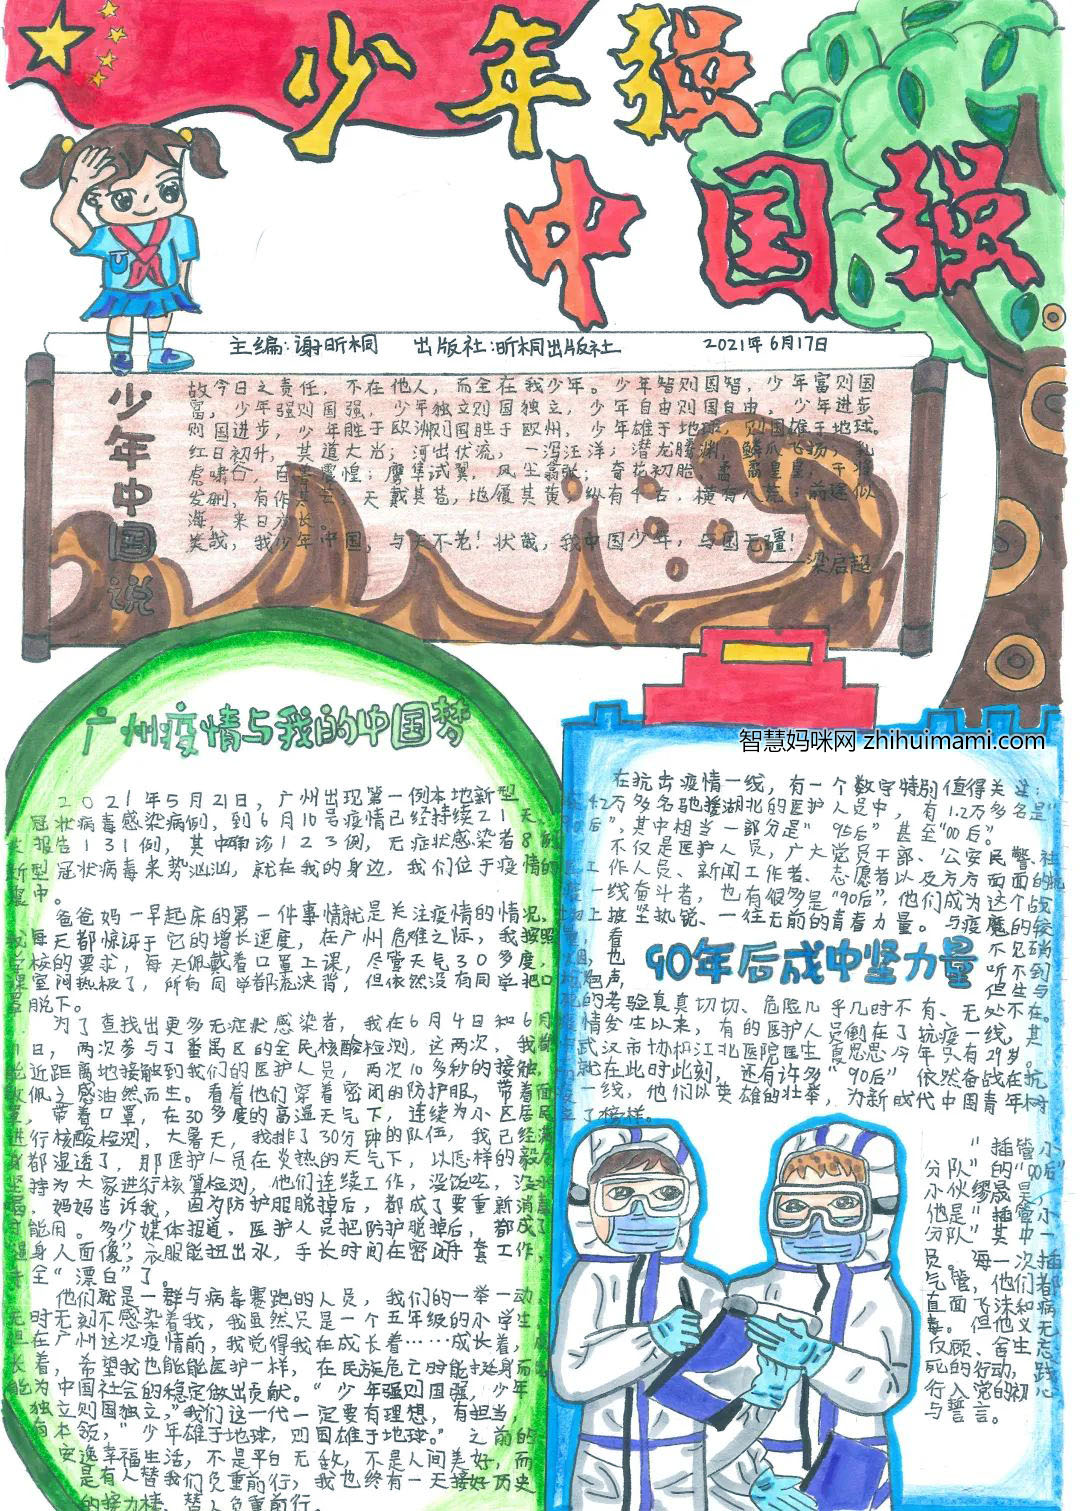 少年强
中国强
主编:谢昕桐 出版社:昕桐出版社 2021年6月17日
少年中国说
故今日之责任，不在他人，而全在我少年。少年智则国智，少年富则国
富，少年强则国强，少年独立则国独立，少年自由则国自由，少年进步
则国进步，少年胜于欧洲则国胜于欧州，少年雄于地球，则国雄于地球。
红日初升，其道大光；河出伏流，一泻汪洋；潜龙腾渊，鳞爪飞扬；乳
虎啸谷，百兽震惶；鹰隼试翼，风尘翕张；奇花初胎，矞矞皇皇；干将
发硎，有作其芒；天戴其苍，地履其黄；纵有千古，横有八荒；前途似
海，来日方长。
美哉，我少年中国，与天不老！状哉，我中国少年，与国无疆！
——梁启超
广州疫情与我的中国梦
2021年5月21日，广州出现第一例本地新型
冠状病毒感染病例，到6月10号疫情已经持续21天，
报告131例，其中确诊123例，无症状感染者8例
新型冠状病毒来势汹汹，就在我的身边，我们位于疫情的
中。
爸爸妈一早起床的第一件事情就是关注疫情的情况，
我每天都惊讶于它的增长速度，在广州危难之际，我按照
学校的要求，每天佩戴着口罩上课，尽管天气30多度，
课室闷热极了，所有同学都流浃背，但依然没有同学把口
罩脱下。
为了查找出更多无症状感染者，我在6月4日和6月
日，两次参与了番禺区的全民核酸检测，这两次，我都
能近距离地接触到我们的医护人员，两次10多秒的接触，
敬佩之感油然而生。看着他们穿着密闭的防护服，带着面
罩，带着口罩，在30多度的高温天气下，连续为小区居民
进行核酸检测，大暑天，我排了30分钟的队伍，我已经满
身都湿透了，那医护人员在炎热的天气下，以怎样的毅力
坚持为大家进行核算检测，他们连续工作，没饭吃，没水
喝，妈妈告诉我，因为防护服脱掉后，都成了要重新消毒
才能用。多少媒体报道，医护人员把防护脱掉后，都成了
身人面像，衣服能扭出水，手长时间在密闭手套工作，
全“漂白”了。
他们就是一群与病毒赛跑的人员，我们的一举一动，
无时无刻不感染着我，我虽然只是一个五年级的小学生，
但在广州这次疫情前，我觉得我在成长着……成长着，成
长着，希望我也能能医护一样，在民族危亡时能挺身而出
能为中国社会的稳定做出贡献。“少年强则国强，少年
独立则国独立，”我们这一代一定要有理想，有担当，
有本领，“少年雄于地球，则国雄于地球。”之前的
安逸幸福生活，不是平白无敌，不是人间美好，而
是有人替我们负重前行，我也终有一天接好历史
的接力棒，替人负重前行。
智慧妈咪网 zhihuimami.com
在抗击疫情一线，有一个数字特别值得关注：
42万多名驰援湖北的医护人员中，有1.2万多名是“
90后”，其中相当一部分是“95后”甚至“00后”。
不仅是医护人员，广大党员干部、公安民警、社
工作人员、新闻工作者、志愿者以及方方面面的抗
疫一线奋斗者，也有很多是“90后”，他们成为这个战
场上披坚热锐、一往无前的青春力量。与疫魔的较
量，看不见硝
烟，也听不到
炮声，但生与
90年后成中坚力量
死的考验真真切切、危险几乎几时不有、无处不在。
疫情发生以来，有的医护人员倒在了抗疫一线，其
武汉市协和江北医院医生夏思思今年只有29岁。
就在此时此刻，还有许多“90后”依然奋战在抗
一线，他们以英雄的壮举，为新时代中国青年树
立了榜样。
“插管小
分队”的“90后”
小伙缪晟昊，
他是“插管小
分队”其中一
员。每一次插
气管，他们都
直面飞沫和病
毒。但他义无
仅顾、舍生忘
死的行动，践
行入党的初心
与誓言。